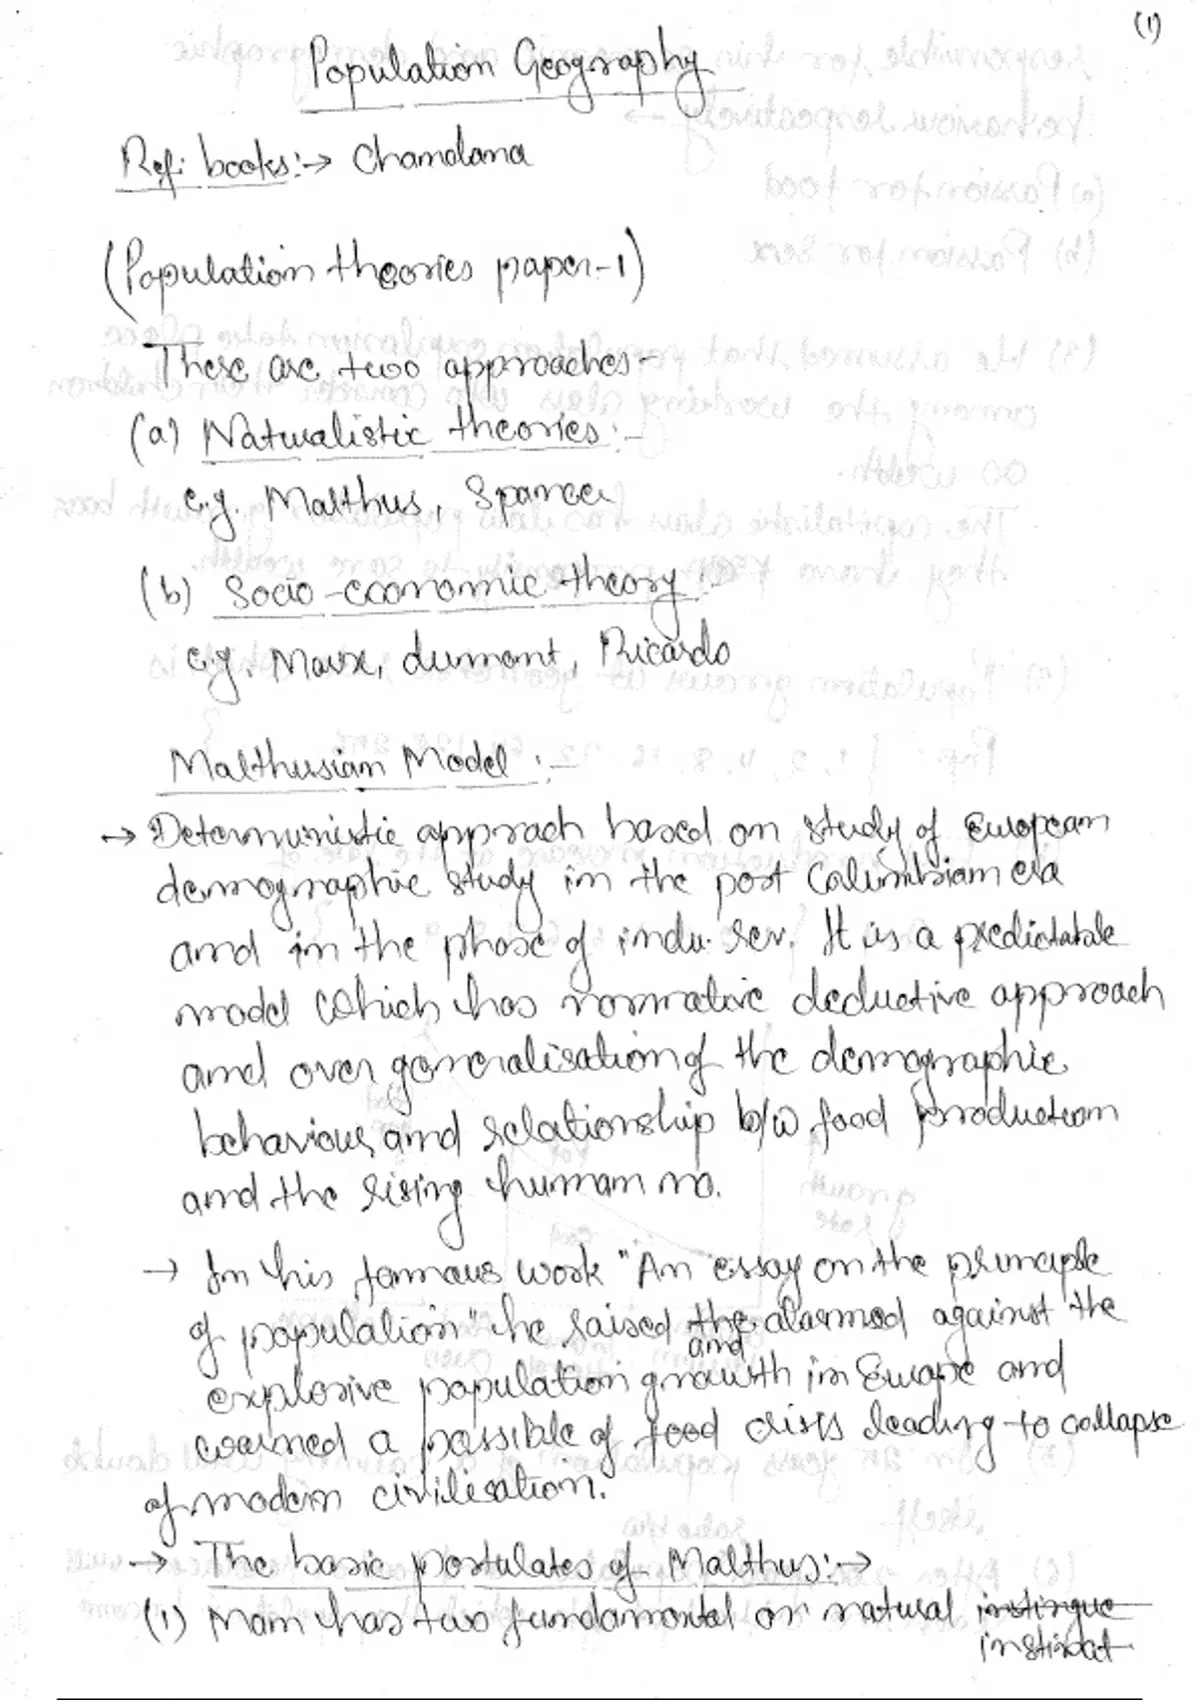 (1)
Population Geography
Ref: books:→ Chandana
(Population theories paper-1)
There are two approaches:-
(a) Naturalistic theories:-
e.g. Malthus, Spancer
(b) Socio-economic theory:-
e.g. Marx, dumont, Ricardo
Malthusian Model:-
→ Deterministic approach based on study of European
demographic study in the post Columbian era
and in the phase of indu. rev. It is a predictable
model which has normative deductive approach
and over generalisation of the demographic
behaviour and relationship b/w food production
and the rising human no.
→ In his famous work "An essay on the principle
of population" he raised the alarmed against the
and
explosive population growth in Europe and
warned a possible of food crisis leading to collapse
of modern civilisation.
→ The basic postulates of Malthus:→
(1) Man has two fundamental or natural instingue
instinct